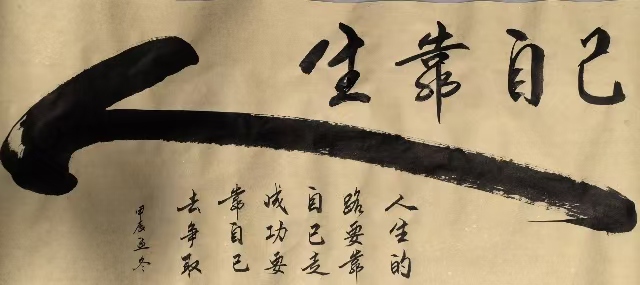 人生靠自己
人生的
路要靠
自己走
成功要
靠自己
去争取
甲辰冬